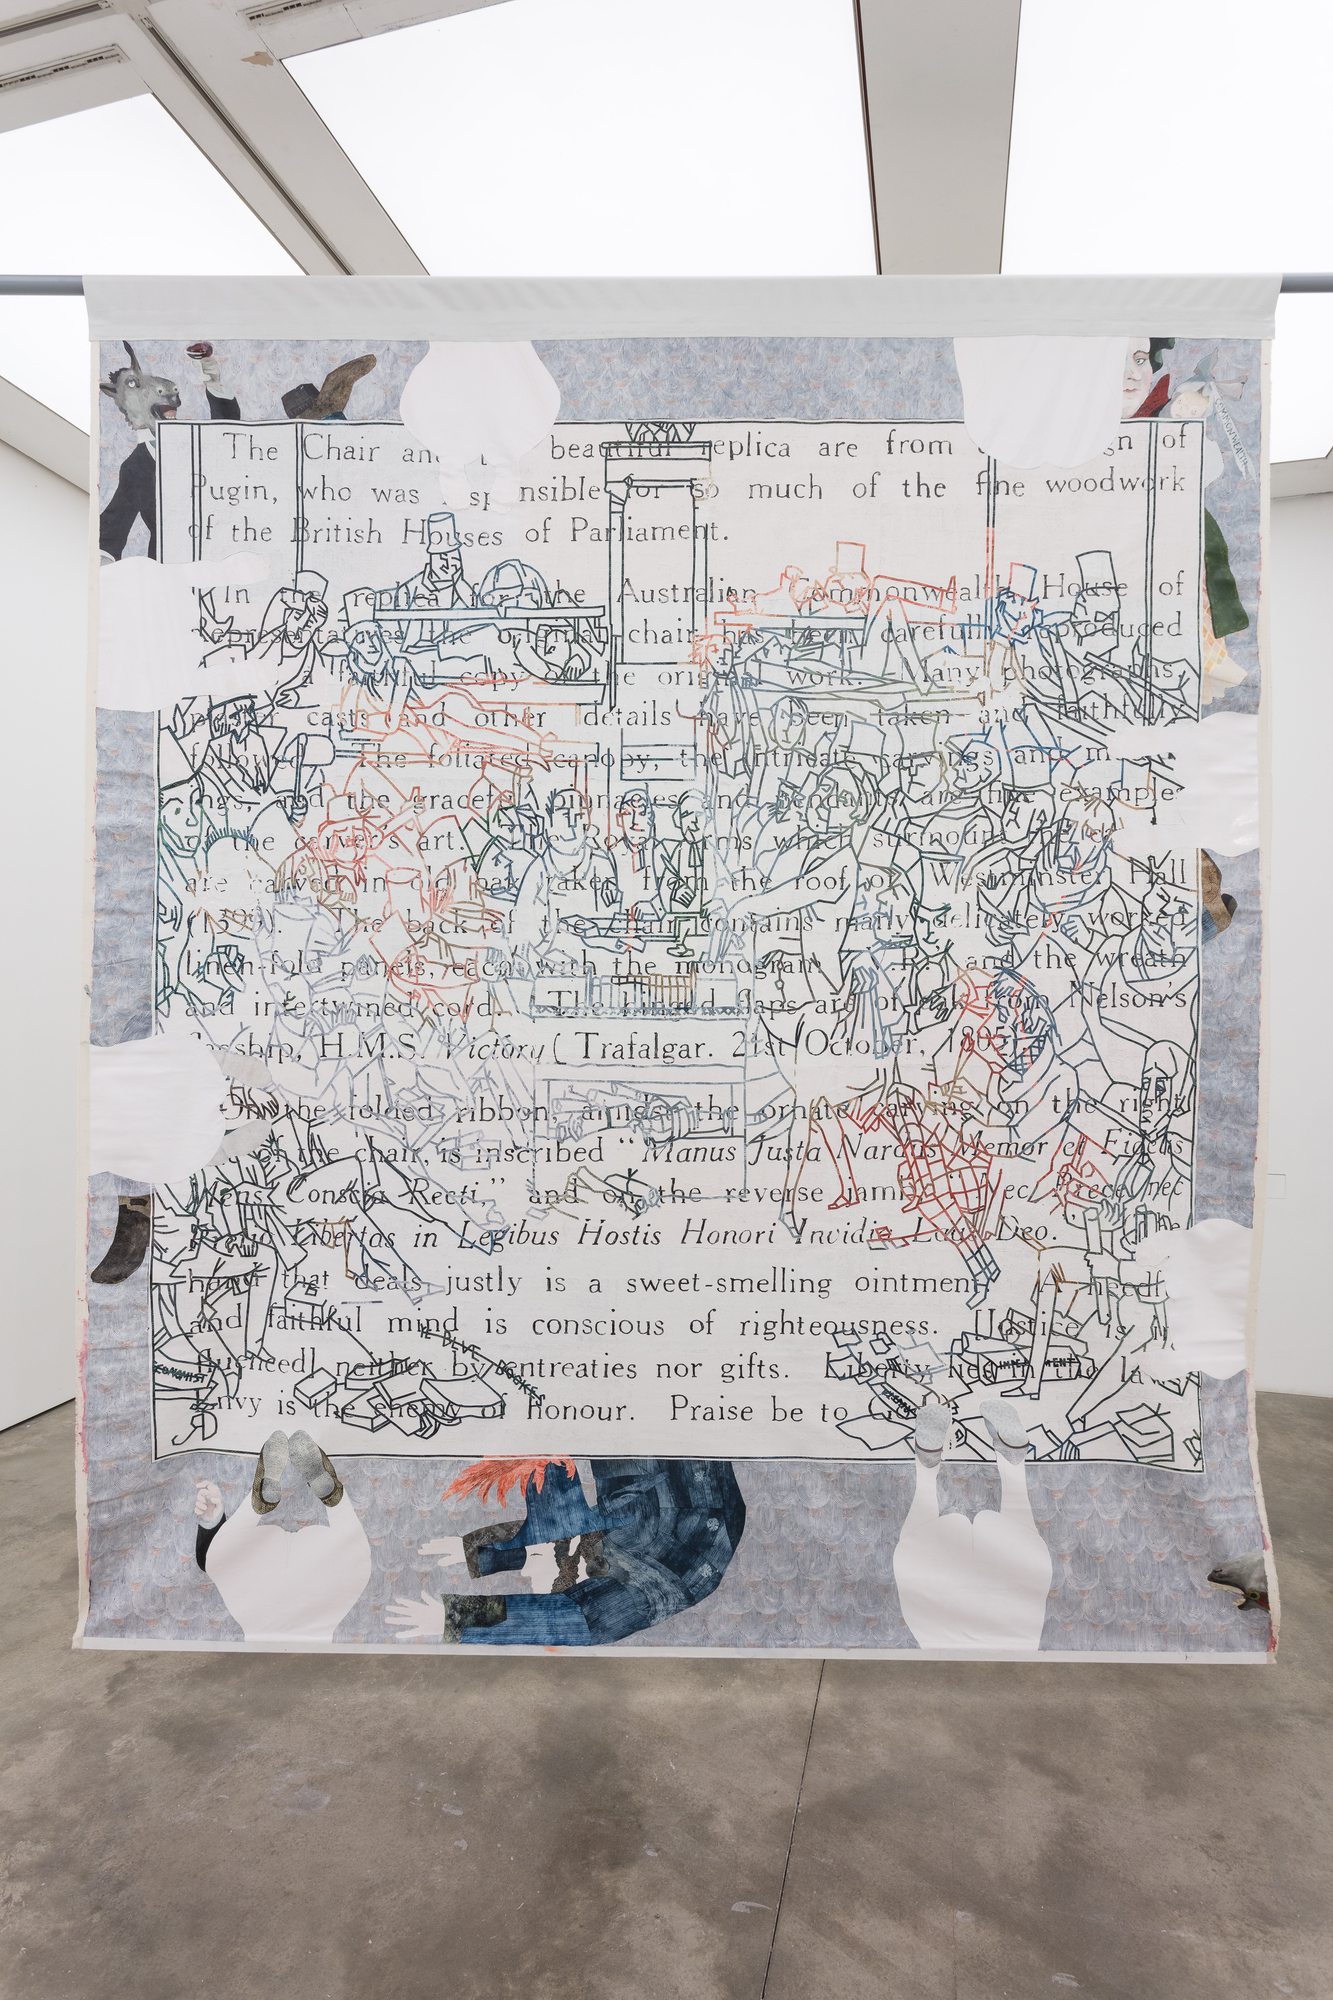 The Chair an beautiful replica are from gn of
Pugin, who was sp nsible for so much of the fine woodwork
of the British Houses of Parliament.
"In the replica for the Australian Commonwealth House of
Representatives the original chair has been carefully reproduced
a faithful copy of the original work. Many photographs,
casts and other details have been taken and faithfully
followed. The foliated canopy, the intricate carvings and m
ings, and the graceful pinnacles and pendants are fine example
of the carver's art. The Royal Arms which surmount the
are carved in old oak taken from the roof of Westminster Hall
(1399). The back of the chair contains many delicately worked
linen-fold panels, each with the monogram R. and the wreath
and intertwined cord. The hinged flaps are of oak from Nelson's
flagship, H.M.S. Victory (Trafalgar. 21st October, 1805).
On the folded ribbon, amidst the ornate carving on the right
of the chair, is inscribed "Manus Justa Nardus Memor et Fidelis
Mens Conscia Recti," and on the reverse jamb "Nec Prece nec
Pretio Libertas in Legibus Hostis Honori Invidia Laus Deo." (The
hand that deals justly is a sweet-smelling ointment. A heedf
and faithful mind is conscious of righteousness. Justice is
neither by entreaties nor gifts. Liberty lies in the laws
Envy is the enemy of honour. Praise be to
YE BLVE BOOKES
COMMONWEALTH